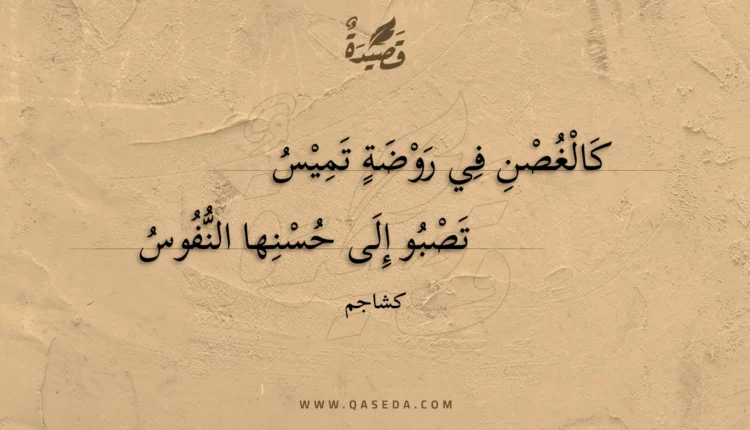 قَصِيْدَةٌ
كَالْغُصْنِ فِي رَوْضَةٍ تَمِيْسُ
تَصْبُو إِلَى حُسْنِها النُّفُوسُ
كشاجم
WWW.QASEDA.COM